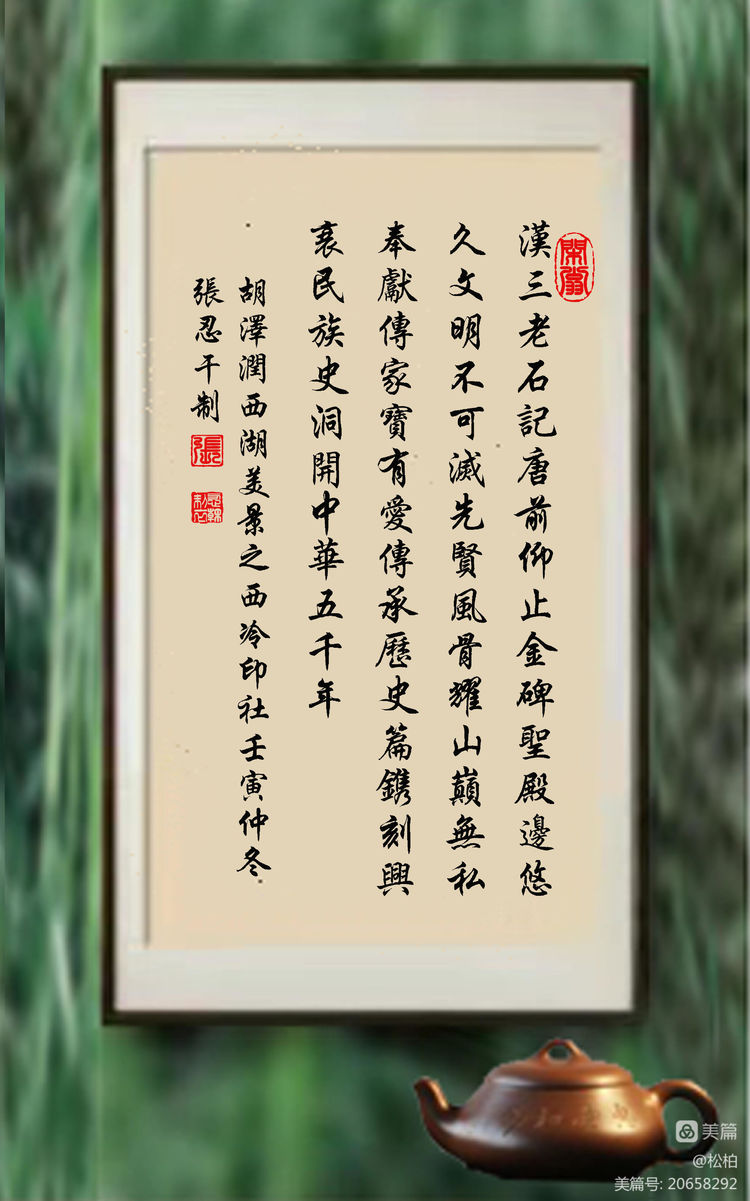 漢三老石記唐前仰止金碑聖殿邊悠
久文明不可滅先賢風骨耀山巔無私
奉獻傳家寶有愛傳承歷史篇鐫刻興
衰民族史洞開中華五千年
胡澤潤西湖美景之西冷印社壬寅仲冬
張忍干制
張
美篇
@松柏
美篇号: 20658292